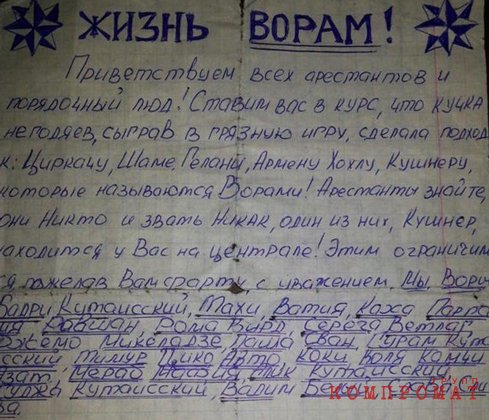 ЖИЗНЬ ВОРАМ!
Приветствуем всех арестантов и
порядочный люд! Ставим вас в курс, что кучка
негодяев, сыграв в грязную игру, сделала подход
к: Циркачу, Шаме, Гелани, Армену Хохлу, Кушнеру,
которые называются Ворами! Арестанты знайте,
они Никто и звать Никак, один из них, Кушнер,
находится у Вас на централе! Этим ограничим
ся пожелав Вам фарту с уважением, Мы Воры:
Балри Кутаисский, Махи, Ватия, Каха
Серега Ветлар
Джемо Микеладзе, Паша
Тимур Пико, Коки Коля
Мераб Кутаисский
Кутаисский, Вадим
КОМПРОМАТ
ва.